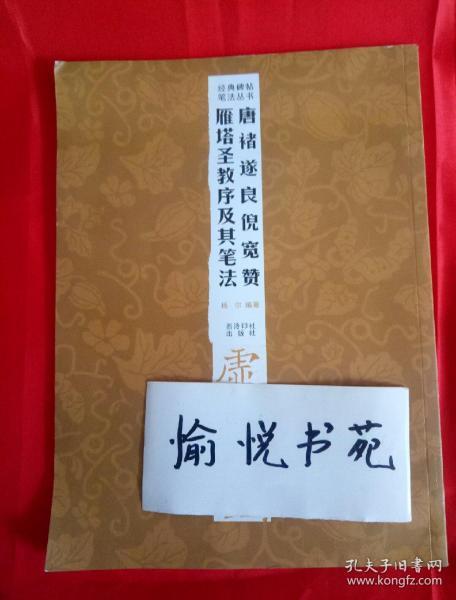 经典碑帖
笔法丛书
唐褚遂良倪宽赞
雁塔圣教序及其笔法
杨尔 编著
西泠印社
出版社
虚
愉悦书苑
孔夫子旧书网
www.kongfz.com